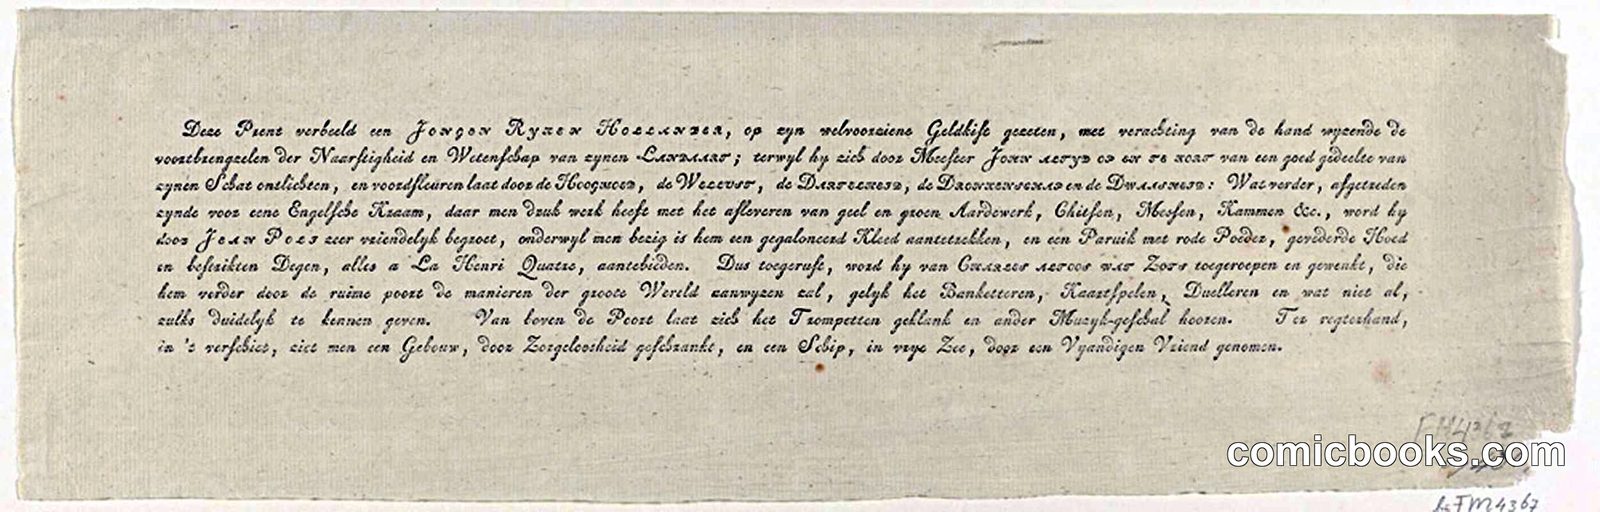 Deze Prent verbeeld een JONGEN RYKEN HOLLANDER, op zyn welvoorziene Geldkist gezeten, met verachting van de hand wyzende de
voortbrengzelen der Naarstigheid en Wetenschap van zynen LANDAART; terwyl hy zich door Meester JOHN van een goed gedeelte van
zynen Schat ontlichten, en voordsleuren laat door de HOOGMOED, de WELLUST, de DARTELHEID, de DRONKENSCHAP en de DWAASHEID: Wat verder, afgetreden
zynde voor eene Engelsche Kraam, daar men druk werk heeft met het afleveren van geel en groen Aardewerk, Chitsen, Messen, Kammen &c., word hy
door JEAN POLI zeer vriendelyk begroet, onderwyl men bezig is hem een gegaloneerd Kleed aantetrekken, en een Paruik met rode Poeder, gevederde Hoed
en bestrikten Degen, alles a La Henri Quatre, aantebieden. Dus toegerust, word hy van CHARLES toegeroepen en gewenkt, die
hem verder door de ruime poort de manieren der groote Wereld aanwyzen zal, gelyk het Banketteren, Kaartspelen, Duelleren en wat niet al,
zulks duidelyk te kennen geven. Van boven de Poort laat zich het Trompetten geklank en ander Muzyk-geschal hooren. Ter regterhand,
in 't verschiet, ziet men een Gebouw, door Zorgeloosheid geschrankt, en een Schip, in vrye Zee, door een Vyandigen Vriend genomen.
comicbooks.com
bsFM4367